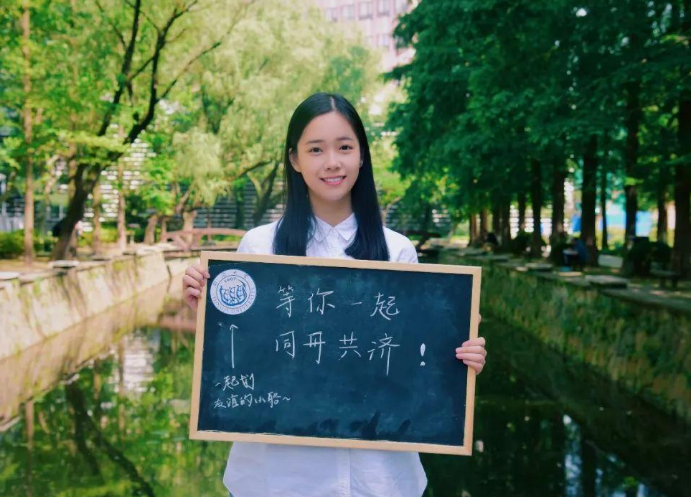 等你一起
同舟共济！
一起划
友谊的小船~